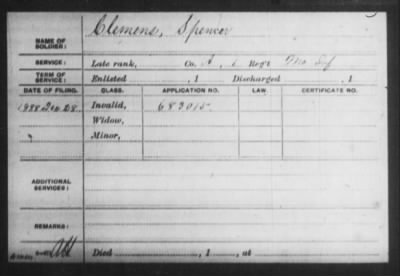 NAME OF SOLDIER: Clemens, Spencer
SERVICE: Late rank, Co. A, 6 Reg't Mo Inf
TERM OF SERVICE: Enlisted , 1 Discharged , 1
DATE OF FILING. CLASS. APPLICATION NO. LAW. CERTIFICATE NO.
1888 Dec 28 Invalid, 683015
Widow,
Minor,
ADDITIONAL SERVICES:
REMARKS:
Died , 1 , at